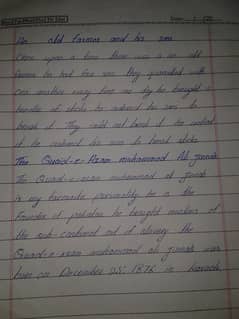 An old farmer and his son
Once upon a time there was a an old
farmer he had five son. They quarreled with
one another every time one day he brought a
bundle of sticks he ordered his sons to
break it They could not break it he untied
it he ordered his son to break sticks
The Quaid-e-Azam muhammad Ali jinnah
The Quaid-e-azam muhammad ali jinnah
is my favourite personality he is the
founder of pakistan he brought muslims of
the sub-continent out of slavery the
Quaid-e-azam muhammad ali jinnah was
born on December 25, 1876 in karachi